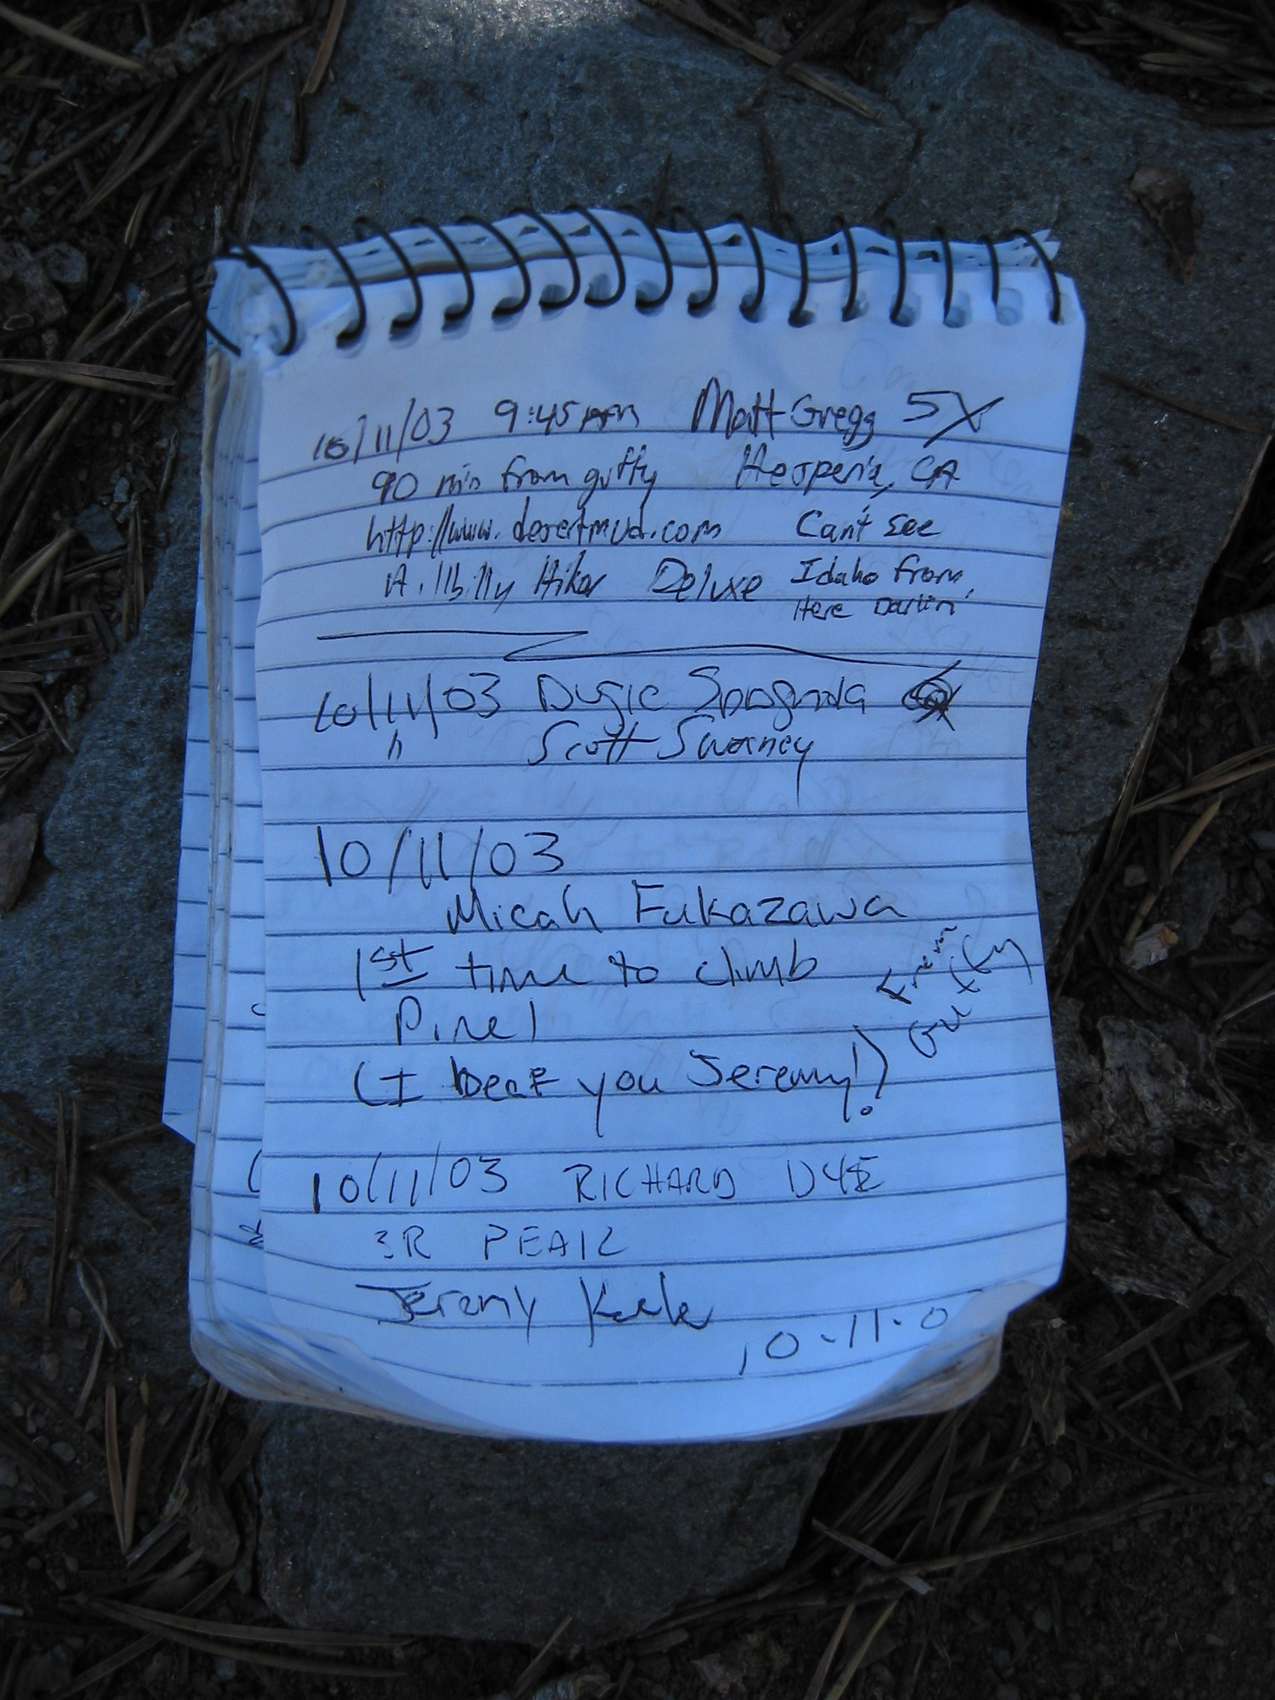 10/11/03 9:45 AM Matt Gregg 5X
90 min from guffy Hesperia, CA
http://www.desertmud.com Can't see
Hillbilly Hiker Deluxe Idaho from
Here Darlin'
10/11/03 Spagnola
Scott Sweeney
10/11/03
Micah Fukazawa
1st time to climb
Pine!
(I beat you Jeremy!)
From
Guffy
10/11/03 RICHARD DYE
3R PEAK
Jeremy
10.11.0